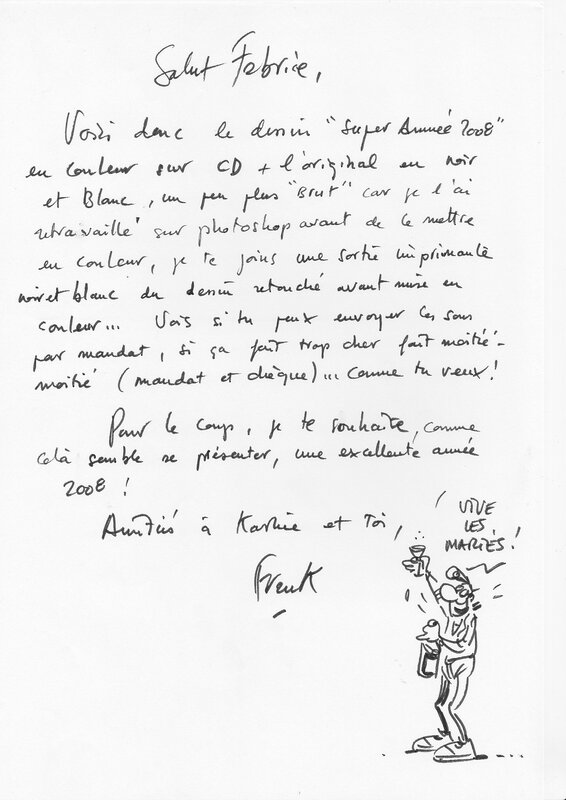 Salut Fabrice,
Voici donc le dessin "Super Année 2008"
en couleur sur CD + l'original en noir
et Blanc, un peu plus "Brut" car je l'ai
retravaillé sur photoshop avant de le mettre
en couleur, je te joins une sortie imprimante
noir et blanc du dessin retouché avant mise en
couleur... Vois si tu peux envoyer les sous
par mandat, si ça fait trop cher fait moitié-
moitié (mandat et chèque)... comme tu veux!
Pour le coup, je te souhaite, comme
celà semble se présenter, une excellente année
2008 !
Amitiés à Karine et Toi,
Frank
VIVE
LES
MARIÉS !